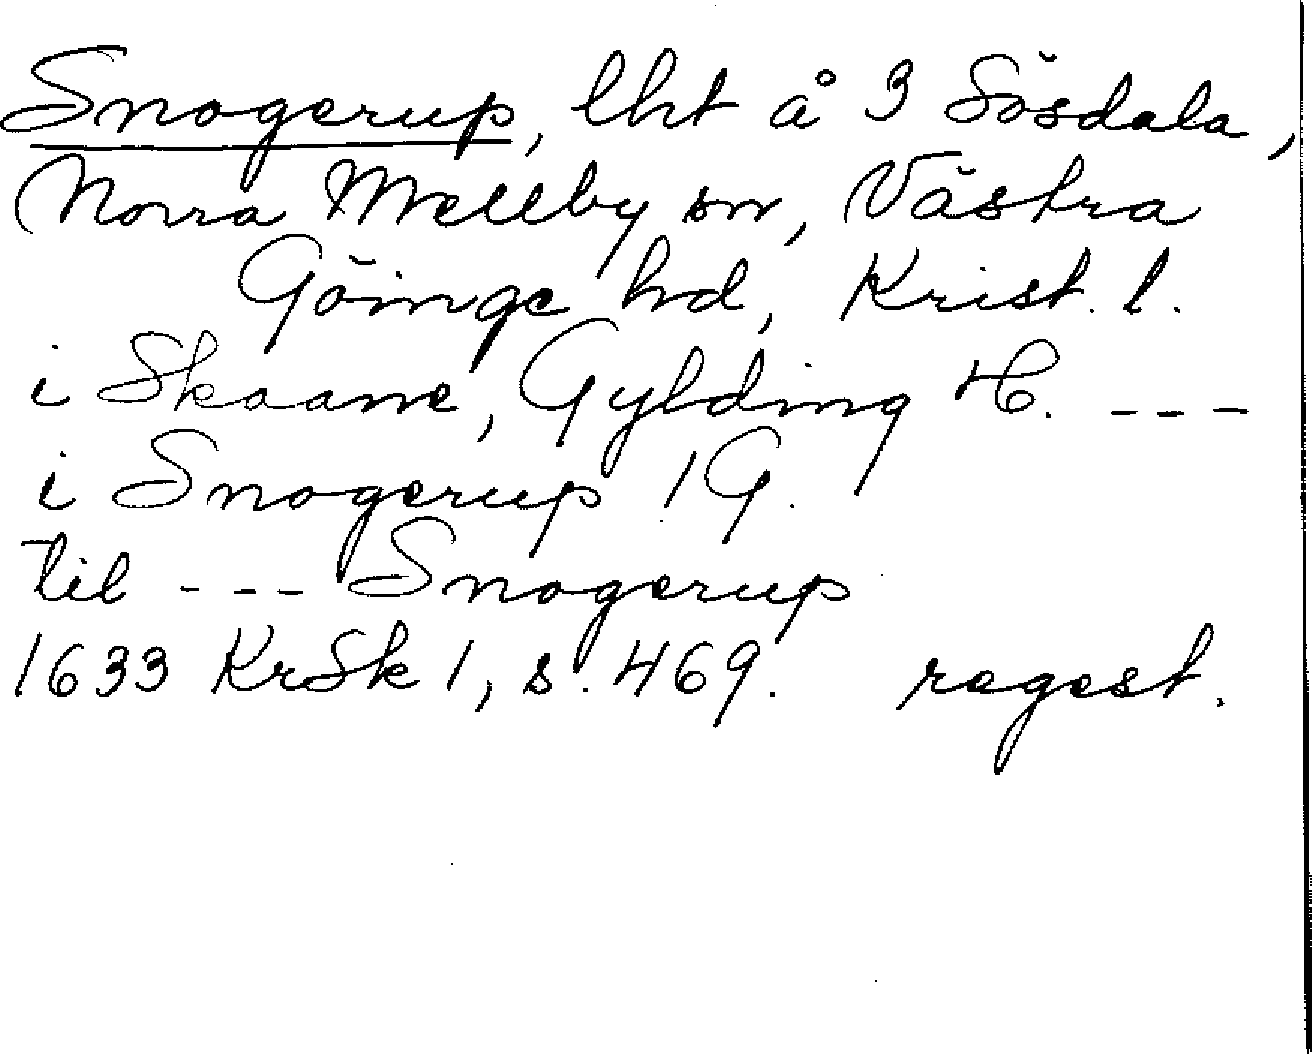 Snogerup, lht å 3 Sösdala,
Norra Mellby sn, Västra
Göinge hd, Krist. l.
i Skaane, Gylding H. ---
i Snogerup 1 G.
til --- Snogerup
1633 KrSk 1, s. 469. regest.